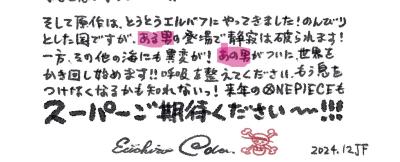 そして原作は、とうとうエルバフにやってきました!のんびり
とした国ですが、ある男の登場で静寂は破られます!
一方、その他の海にも異変が!あの男がついに世界を
かき回し始めます!!呼吸を整えてください、もう息を
つけなくなるかも知れないっ!来年のONE PIECEも
スーパーご期待ください〜〜!!!
Eiichiro Oda.
2024.12JF